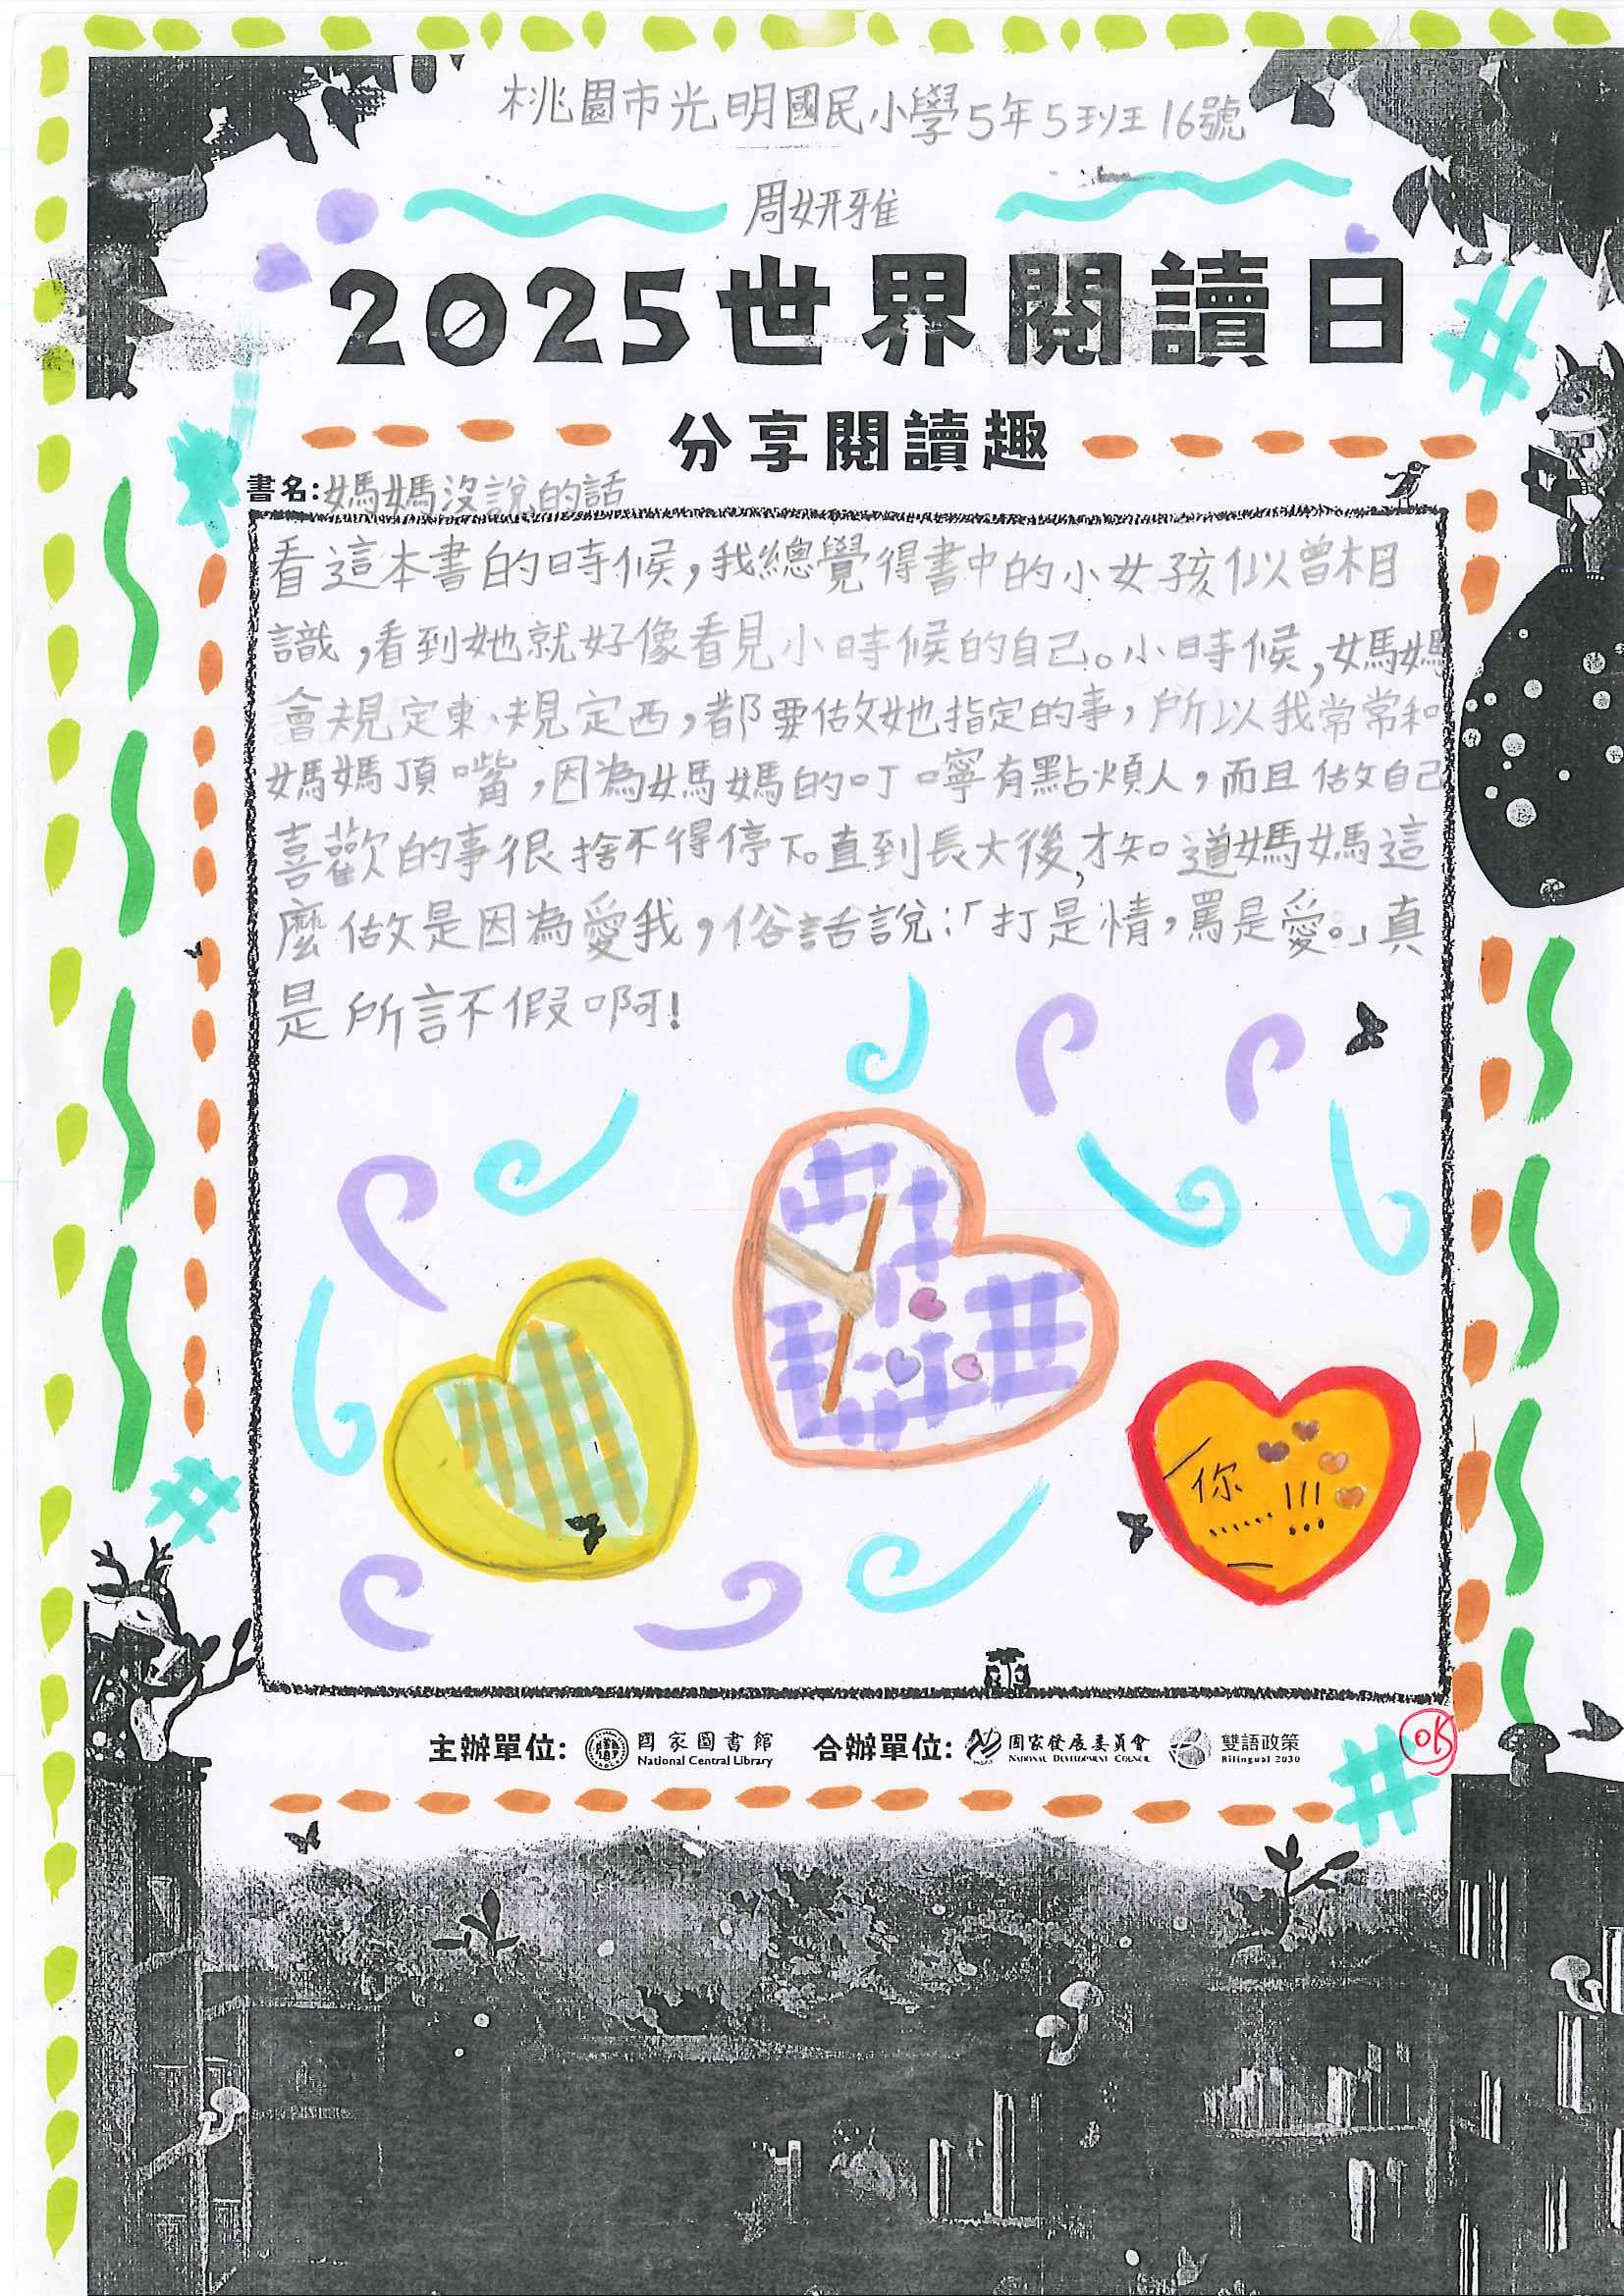 桃園市光明國民小學5年5班16號
周妍雅
2025世界閱讀日
分享閱讀趣
書名:媽媽沒說的話
看這本書的時候,我總覺得書中的小女孩似曾相
識,看到她就好像看見小時候的自己。小時候,媽媽
會規定東、規定西,都要做她指定的事,所以我常常和
媽媽頂嘴,因為媽媽的叮嚀有點煩人,而且做自己
喜歡的事很捨不得停下。直到長大後,才知道媽媽這
麼做是因為愛我,俗話說:「打是情,罵是愛。」真
是所言不假啊!
你
......!!!
主辦單位: 國家圖書館 National Central Library 合辦單位: 國家發展委員會 NATIONAL DEVELOPMENT COUNCIL 雙語政策 Bilingual 2030
OK